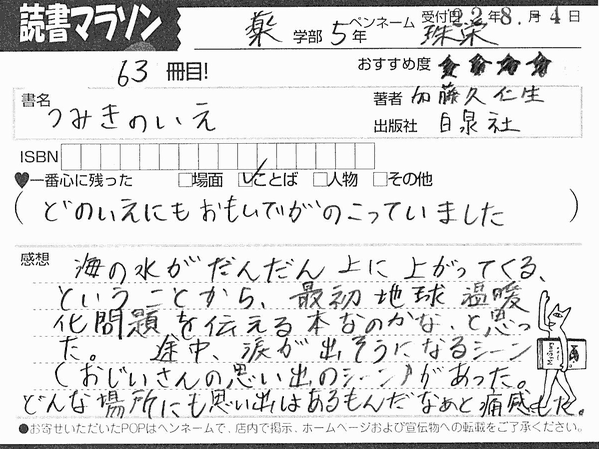 読書マラソン
薬 学部 5年 ペンネーム 珠栄 受付日 22年 8.月 4日
63 冊目!
おすすめ度 ★★★★
書名 つみきのいえ
著者 加藤久仁生
出版社 白泉社
ISBN
♥一番心に残った □場面 ☑ことば □人物 □その他
(どのいえにもおもいでがのこっていました)
●感想 海の水がだんだん上に上がってくる、
ということから、最初地球温暖
化問題を伝える本なのかな、と思っ
た。 途中、涙が出そうになるシーン
(おじいさんの思い出のシーン)があった。
どんな場所にも思い出はあるもんだなぁと痛感した。
●お寄せいただいたPOPはペンネームで、店内で掲示、ホームページおよび宣伝物への転載をご了承ください。